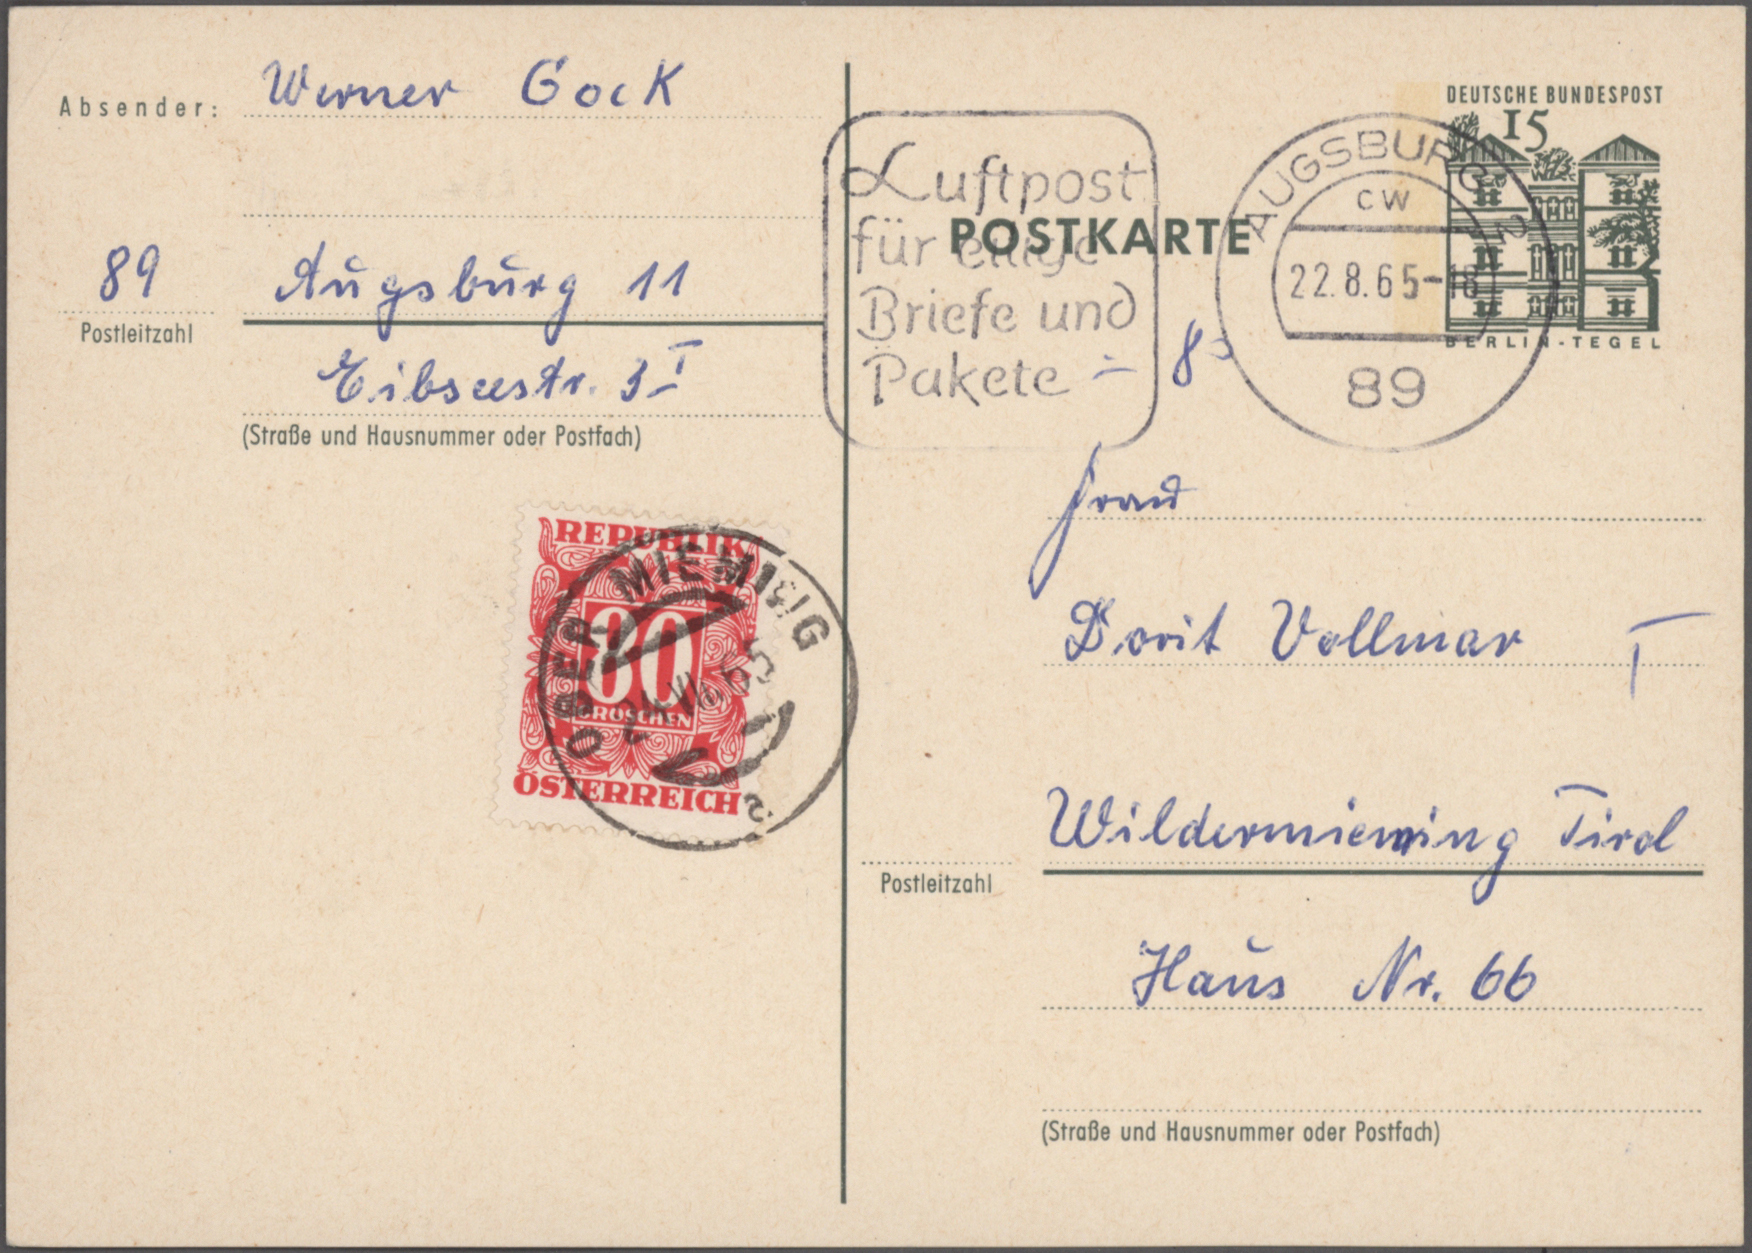 Absender: Werner Gock
89 Augsburg 11
Postleitzahl
Eibseestr. 3 I
(Straße und Hausnummer oder Postfach)
REPUBLIK
80
GROSCHEN
ÖSTERREICH
OBERMIEMING
24.VIII.65
a
Luftpost
für eilige
Briefe und
Pakete
POSTKARTE
AUGSBURG 2
cw
22.8.65-18
89
DEUTSCHE BUNDESPOST
15
BERLIN-TEGEL
Frau
Dorit Vollmar T
Wildermieming Tirol
Postleitzahl
Haus Nr. 66
(Straße und Hausnummer oder Postfach)